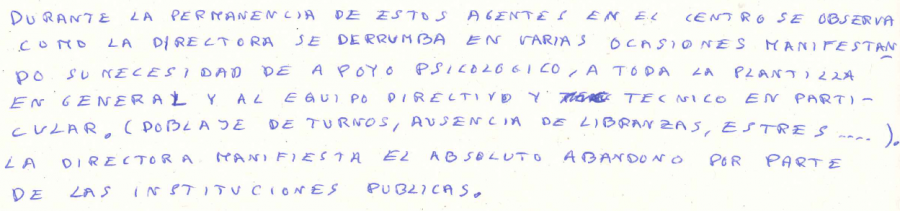 DURANTE LA PERMANENCIA DE ESTOS AGENTES EN EL CENTRO SE OBSERVA
COMO LA DIRECTORA SE DERRUMBA EN VARIAS OCASIONES MANIFESTAN
DO SU NECESIDAD DE APOYO PSICOLOGICO, A TODA LA PLANTILLA
EN GENERAL Y AL EQUIPO DIRECTIVO Y TECNICO EN PARTI-
CULAR. (DOBLAJE DE TURNOS, AUSENCIA DE LIBRANZAS, ESTRES....).
LA DIRECTORA MANIFIESTA EL ABSOLUTO ABANDONO POR PARTE
DE LAS INSTITUCIONES PUBLICAS.